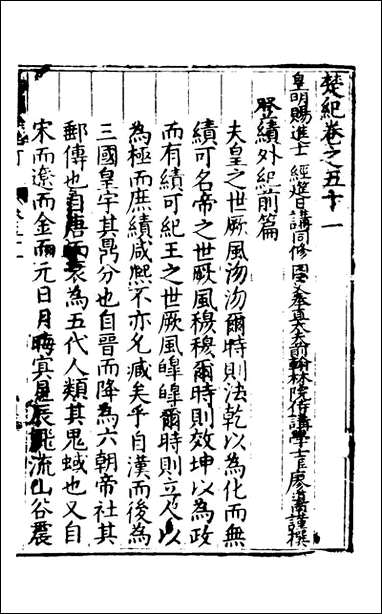 楚紀卷之五十一
皇明賜進士 經筵日講同修 國史奉直大夫前翰林院侍講學士臣廖道南謹撰
登績外紀前篇
夫皇之世厥風沕沕爾時則法乾以為化而無
績可名帝之世厥風穆穆爾時則效坤以為政
而有績可紀王之世厥風皥皥爾時則立人以
為極而庶績咸熈不亦允臧矣乎自漢而後為
三國皇宇其剖分也自晉而降為六朝帝社其
郵傳也自唐而衰為五代人類其鬼蜮也又自
宋而遼而金而元日月晦冥星辰飛流山谷震